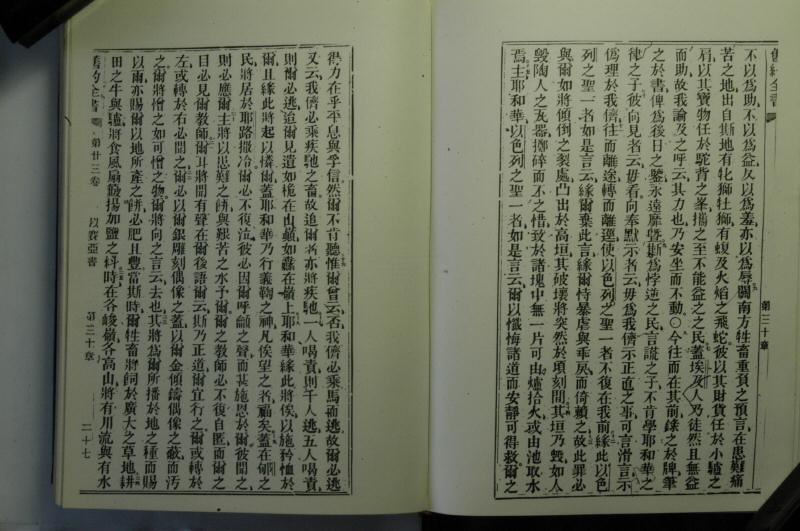 舊約全書
第三十章
不以爲助不以爲益反以爲羞亦以爲辱關南方牲畜重負之預言在患難痛
苦之地出自斯地有牝獅牡獅有蝮及火焰之飛蛇彼以其財貨任於小驢之
肩以其寶物任於駝背之峯攜之至不能益之之民蓋埃及人乃徒然且無益
而助故我論及之呼云其力也乃安坐而不動○今往而在其前錄之於牌筆
之於書俾爲後日之鑒永遠靡曁斯爲悖逆之民言謊之子不肯學耶和華之
律之子彼向見者云毋看向奉默示者云毋爲我儕示正直之事可言滑言示
僞理於我儕往而離途轉而離逕使以色列之聖一者不復在我前緣此以色
列之聖一者如是言云緣爾棄此言緣爾恃暴虐與乖戾而倚賴之故此罪必
與爾如將傾倒之裂處凸出於高垣其破壞將突然於頃刻間其垣乃毀如人
毀陶人之瓦器擲碎而不之惜致於諸塊中無一片可由爐拾火或由池取水
焉主耶和華以色列之聖一者如是言云爾以懺悔諸道而安靜可得救爾之
得力在乎平息與孚信然爾不肯聽惟爾曾云否我儕必乘馬而逃故爾必逃
又云我儕必乘疾馳之畜故追爾者亦將疾馳一人喝責則千人逃五人喝責
則爾必逃迨爾見遺如桅在山巔如纛在嶺上耶和華緣此將俟以施矜恤於
爾且緣此將起以憐爾蓋耶和華乃行義鞫之神凡俟望之者福矣蓋在郇之
民將居於耶路撒冷爾必不復泣彼必因爾呼籲之聲而甚施恩於爾彼聞之
則必應爾主將以患難之餅與艱苦之水予爾爾之教師必不復自匿而爾之
目必見爾教師爾耳將聞有聲在爾後語爾云斯乃正道爾宜行之爾或轉於
左或轉於右必聞之爾必以爾銀雕刻偶像之蓋以爾金傾鑄偶像之蔽而污
之爾將憎之如可憎之物爾將向之言云去也其將爲爾所播於地之種而賜
以雨亦賜爾以地所產之餅必肥且豐當斯時爾牲畜將飼於廣大之草地耕
田之牛與驢將食風扇簸揚加鹽之料時在各峻嶺各高山將有川流與有水
舊約全書
第廿三卷
以賽亞書
第三十章
二十七